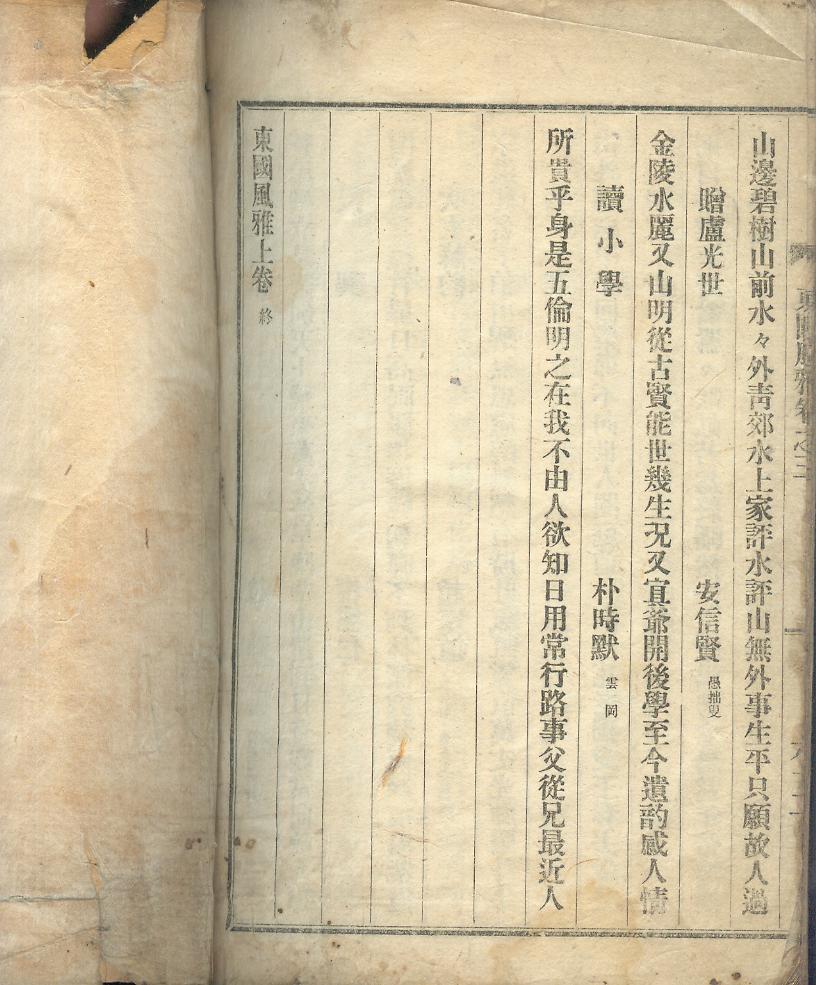 山邊碧樹山前水々外靑郊水上家評水評山無外事生平只願故人過
贈盧光世 安信賢 愚拙叟
金陵水麗又山明從古賢能世幾生況又宜爺開後學至今遺韵感人情
讀小學 朴時默 雲岡
所貴乎身是五倫明之在我不由人欲知日用常行路事父從兄最近人
東國風雅上卷 終